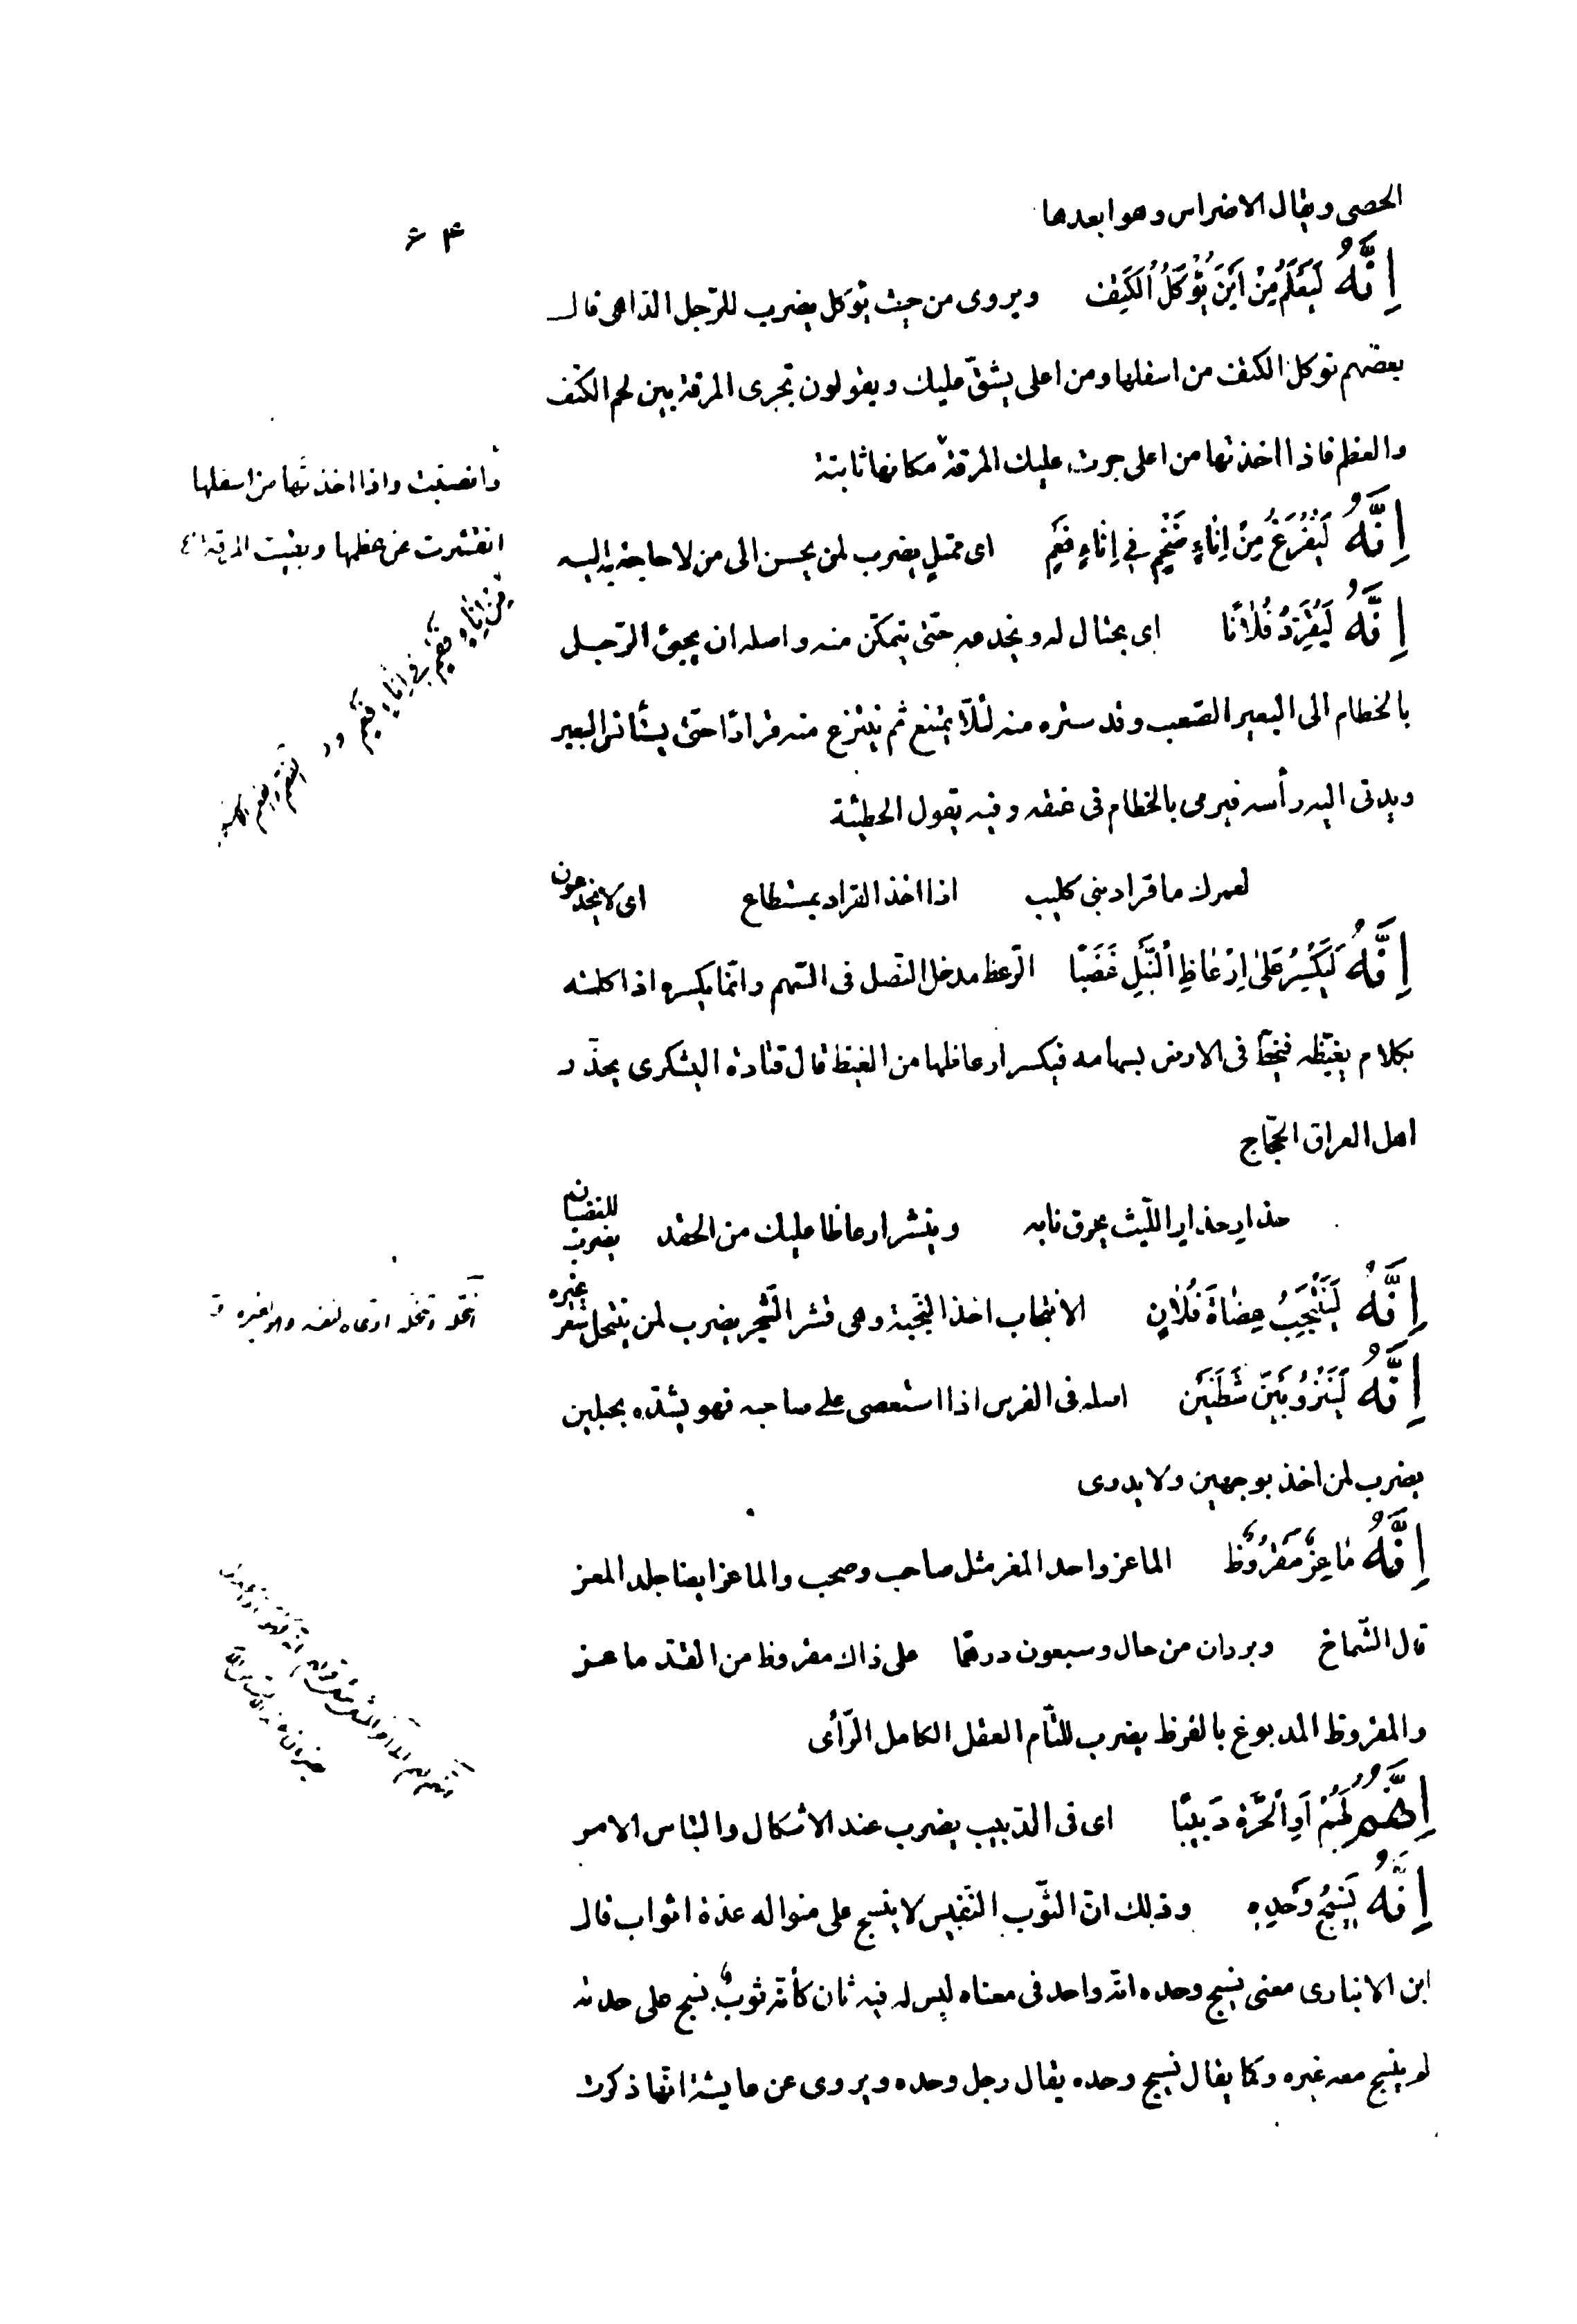 الحصى ويقال الاضراس وهو ابعدها
۶۴
اِنَّهُ لَيَعْلَمُ مِنْ اَيْنَ تُؤْكَلُ الْكَتِفُ ويروى من حيث تؤكل يضرب للرّجل الداهى قال
بعضهم توكل الكتف من اسفلها ومن اعلى يشقّ عليك ويقولون تجرى المرقة بين لحم الكتف
والعظم فاذا اخذتها من اعلى جرت عليك المرقة مكانها ثابتة
وانصبّت واذا اخذتها من اسفلها
انقشرت عن عظمها وبقيت المرقة
اِنَّهُ لَيُفْرِغُ مِنْ اِنَاءٍ ضَخْمٍ فِي اِنَاءٍ فَعْمٍ اى ممتلٍ يضرب لمن يحسن الى من لا حاجة به اليه
من اناء فى اناء
اِنَّهُ لَيُقَرِّدُ فُلَانًا اى يحتال له ويخدعه حتى يتمكّن منه واصله ان يجىء الرّجل
بالخطام الى البعير الصّعب وقد ستره منه لئلّا يمتنع ثم ينتزع منه قرادًا حتى يستأنس البعير
ويدنى اليه رأسه فيرمى بالخطام فى عنقه وفيه يقول الحطيئة
لعمرك ما قراد بنى كليب اذا اخذ القراد بمستطاع اى لا يخدعون
اِنَّهُ لَيَكْسِرُ عَلَىَّ اِرْعَاظَ النَّبْلِ غَضَبًا الرّعظ مدخل النّصل فى السّهم وانّما يكسره اذا كلمته
بكلام يغيظه فيخطّ فى الارض بسهامه فيكسر ارعاظها من الغيظ قال قتادة اليشكرى يحذّر
اهل العراق الحجّاج
حذار حذار اللّيث يحرق نابه وينشر ارعاظا عليك من الحقد يضرب للغضبان
اِنَّهُ لَيَنْتَجِبُ عِضَاةَ فُلَانٍ الانتجاب اخذ النّجبة وهى قشر الشّجر يضرب لمن ينتحل شعر غيره
انتحله وتنحّله ادّعاه لنفسه وهو لغيره ق
اِنَّهُ لَيَنْزُو بَيْنَ شَطَنَيْن اصله فى الفرس اذا استعصى على صاحبه فهو يشدّه بحبلين
يضرب لمن اخذ بوجهين ولا يدرى
اِنَّهُ مَاعِزٌ مَقْرُوظٌ الماعز واحد المعز مثل صاحب وصحب والماعز ايضا جلد المعز
قال الشّماخ وبردان من خال وسبعون درهمًا على ذاك مقروظ من القدّ ماعز
والمقروظ المدبوغ بالقرظ يضرب للتّام العقل الكامل الرّأى
اِنَّهُمْ لَهُمْ اَوِ الْحَرَّةُ دَبِيبًا اى فى الدّبيب يضرب عند الاشكال والتباس الامر
اِنَّهُ نَسِيجُ وَحْدِهِ وذلك انّ الثّوب النّفيس لا ينسج على منواله عدّة اثواب قال
ابن الانبارى معنى نسيج وحده انّه واحد فى معناه ليس له فيه ثان كأنّه ثوبٌ نسج على حدته
لم ينسج معه غيره وكما يقال نسيج وحده يقال رجل وحده ويروى عن عايشة انّها ذكرت